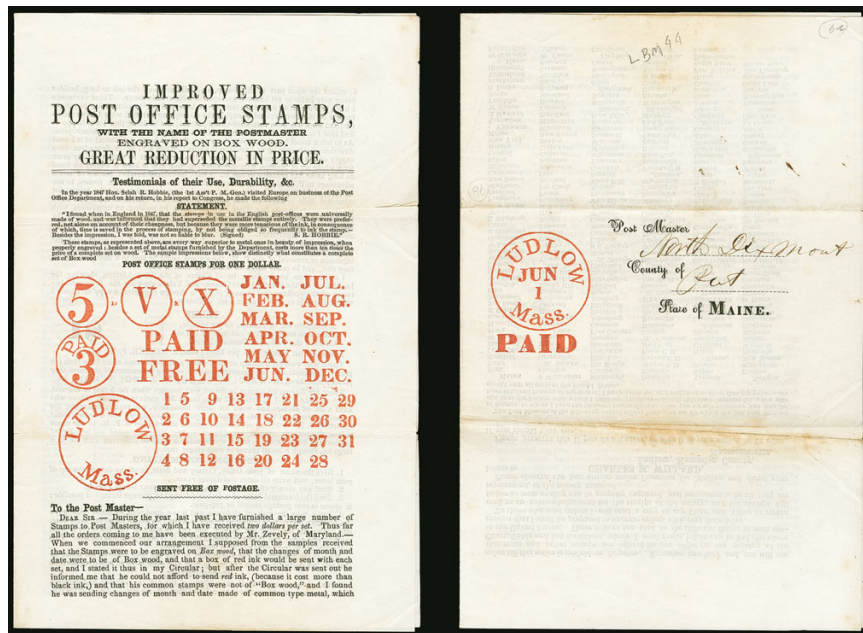 IMPROVED
POST OFFICE STAMPS,
WITH THE NAME OF THE POSTMASTER
ENGRAVED ON BOX WOOD.
GREAT REDUCTION IN PRICE.
Testimonials of their Use, Durability, &c.
In the year 1847 Hon. Selah R. Hobbie, (the 1st Ass't P. M. Gen.) visited Europe on business of the Post
Office Department, and on his return, in his report to Congress, he made the following
STATEMENT.
"I found when in England in 1847, that the stamps in use in the English post-offices were universally
made of wood, and was informed that they had superseded the metallic stamps entirely. They were prefer-
red, not alone on account of their cheapness, but because they were more tenacious of the ink, in consequence
of which, time is saved in the process of stamping, by not being obliged so frequently to ink the stamp.—
Besides the impression, I was told, was not so liable to blur. (Signed) S. R. HOBBIE."
These stamps, as represented above, are every way superior to metal ones in beauty of impression, when
properly engraved; besides a set of metal stamps furnished by the Department, costs more than ten times the
price of a complete set on wood. The sample impressions below, show distinctly what constitutes a complete
set of Box wood
POST OFFICE STAMPS FOR ONE DOLLAR.
5 V X
JAN. JUL.
FEB. AUG.
MAR. SEP.
PAID 3
PAID
FREE
APR. OCT.
MAY NOV.
JUN. DEC.
LUDLOW
Mass.
1 5 9 13 17 21 25 29
2 6 10 14 18 22 26 30
3 7 11 15 19 23 27 31
4 8 12 16 20 24 28
SENT FREE OF POSTAGE.
To the Post Master—
DEAR SIR — During the year last past I have furnished a large number of
Stamps to Post Masters, for which I have received two dollars per set. Thus far
all the orders coming to me have been executed by Mr. Zevely, of Maryland.—
When we commenced our arrangement I supposed from the samples received
that the Stamps were to be engraved on Box wood, that the changes of month and
date were to be of Box wood, and that a box of red ink would be sent with each
set, and I stated it thus in my Circular; but after the Circular was sent out he
informed me that he could not afford to send red ink, (because it cost more than
black ink,) and that his common stamps were not of "Box wood," and I found
he was sending changes of month and date made of common type metal, which
LBM44
LUDLOW
JUN
1
Mass.
PAID
Post Master
North Dixmont
County of
State of MAINE.